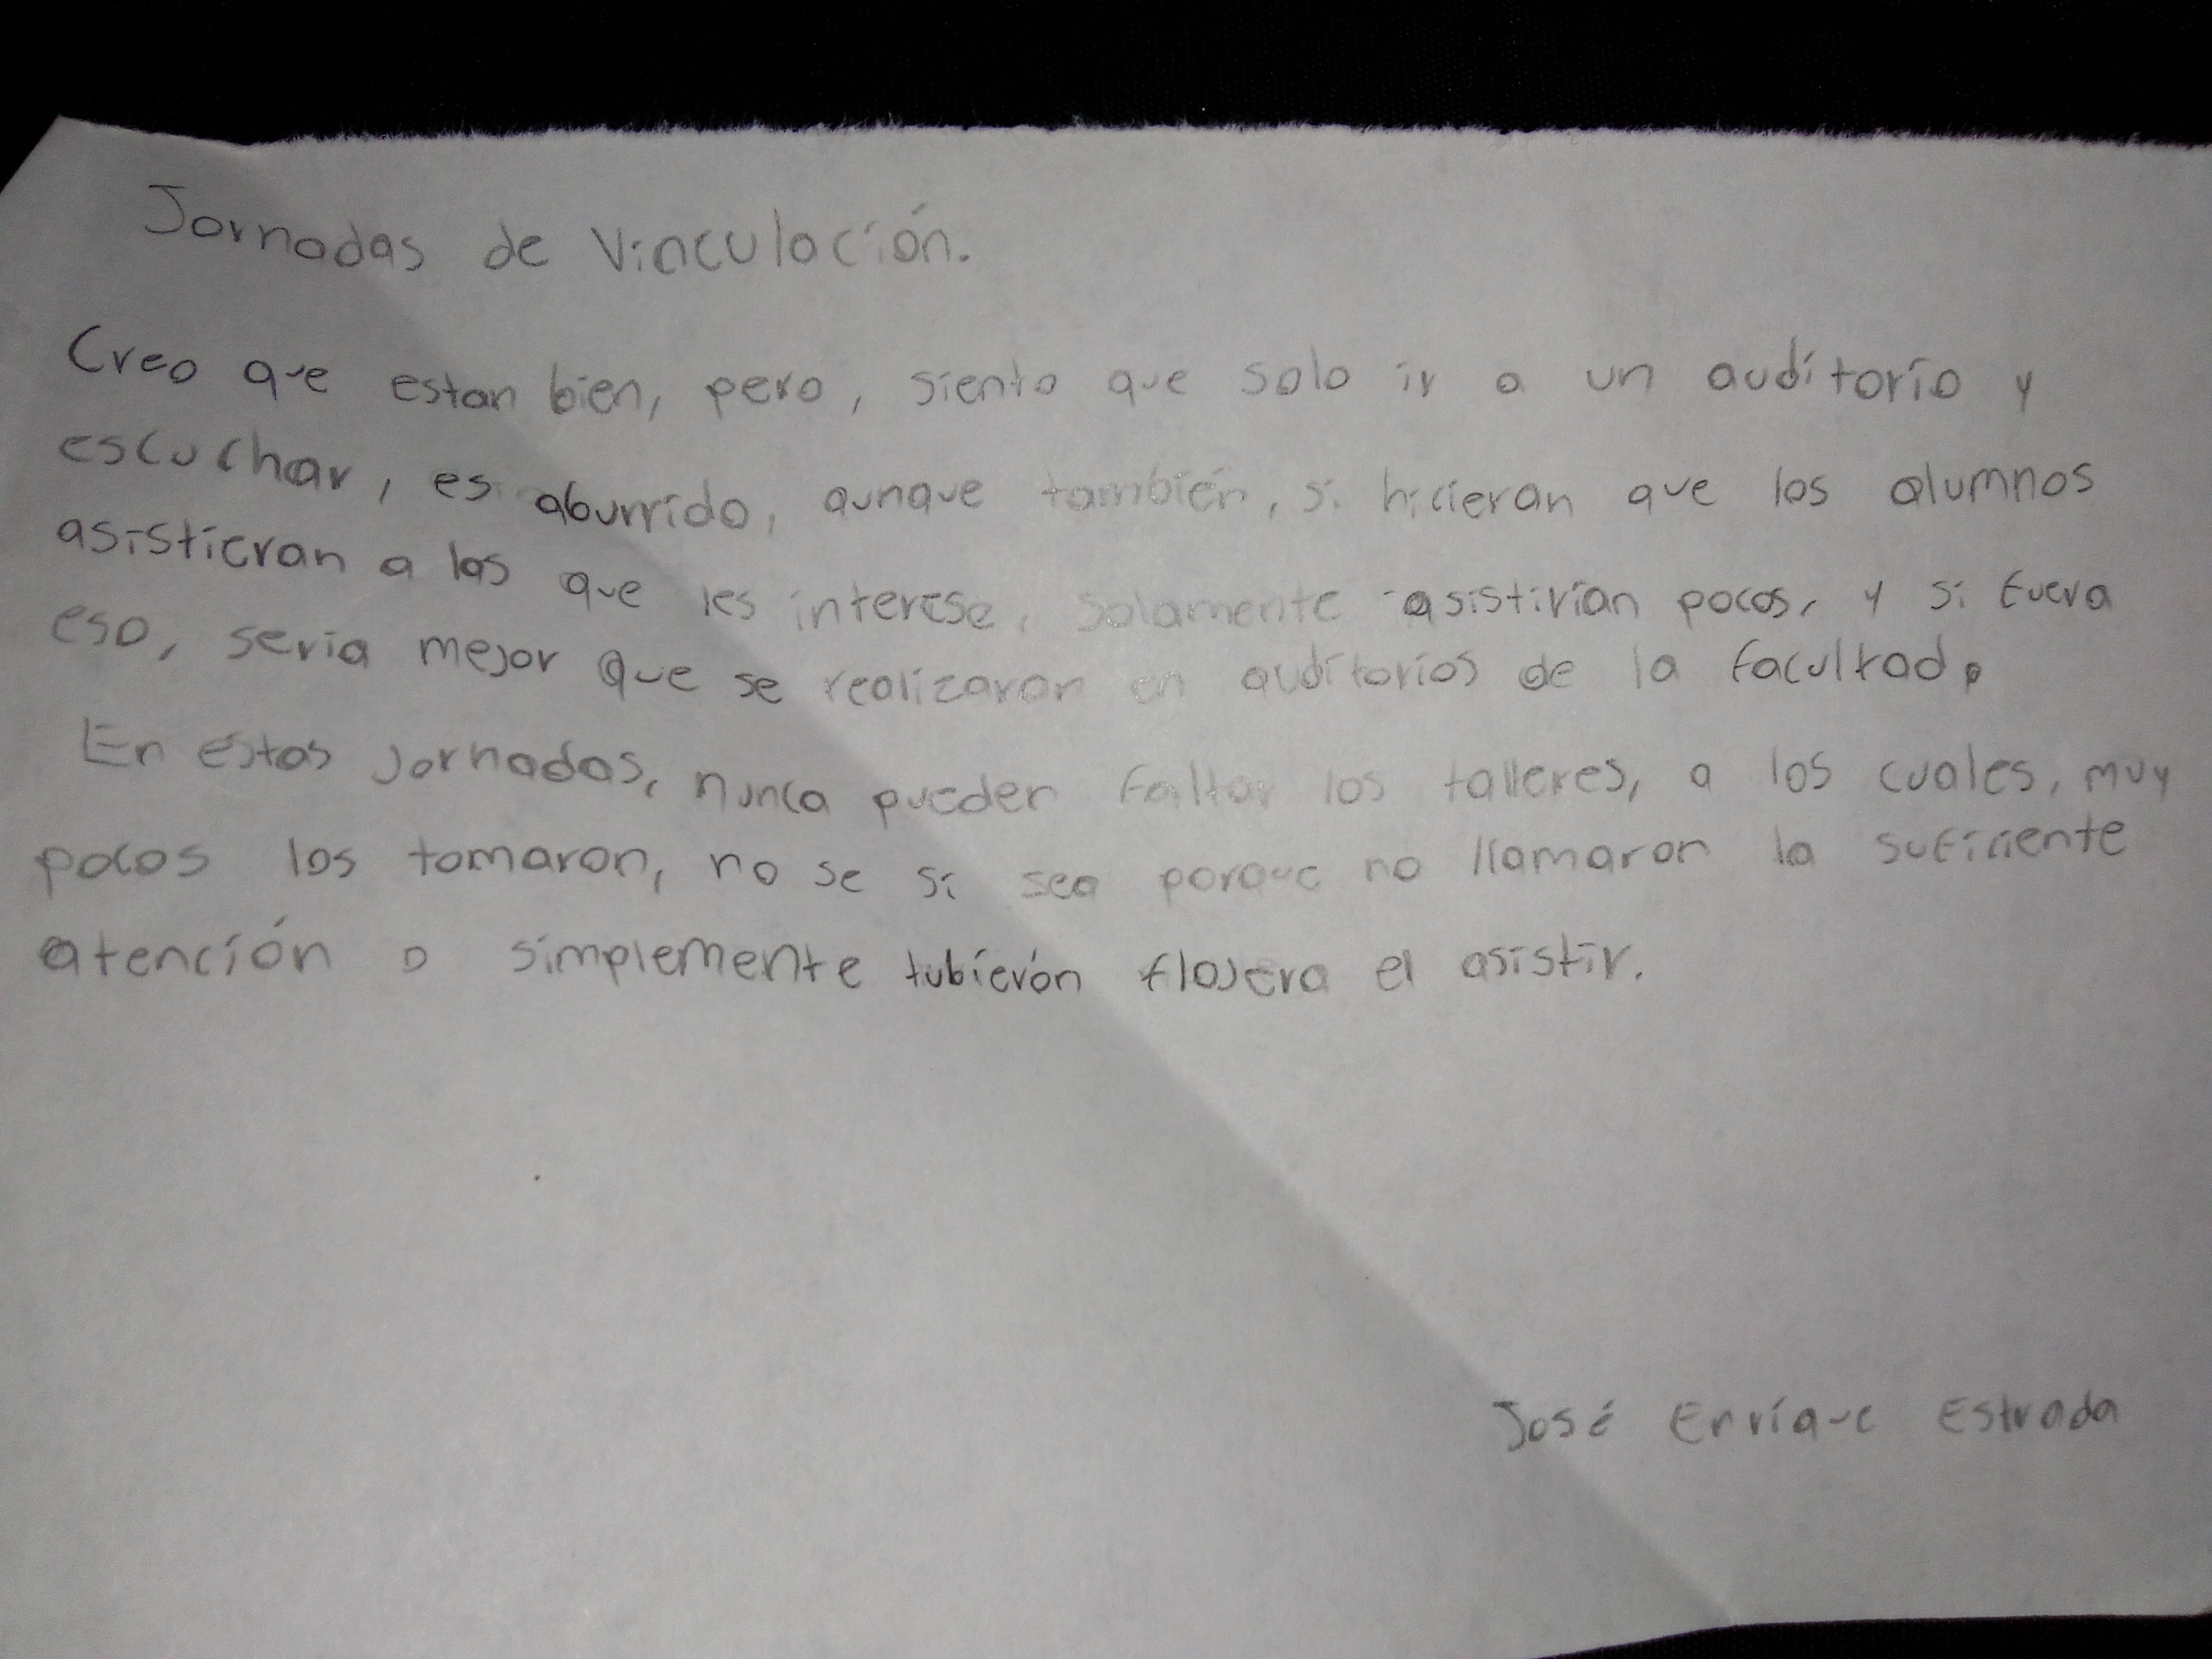 Jornadas de Vinculación.
Creo que estan bien, pero, siento que solo ir a un auditorio y
escuchar, es aburrido, aunque también, si hicieran que los alumnos
asistieran a las que les interese, solamente asistirían pocos, y si fuera
eso, seria mejor que se realizaran en auditorios de la facultad.
En estas jornadas, nunca pueden faltar los talleres, a los cuales, muy
pocos los tomaron, no se si sea porque no llamaron la suficiente
atención o simplemente tubierón flojera el asistir.
José Enrique Estrada